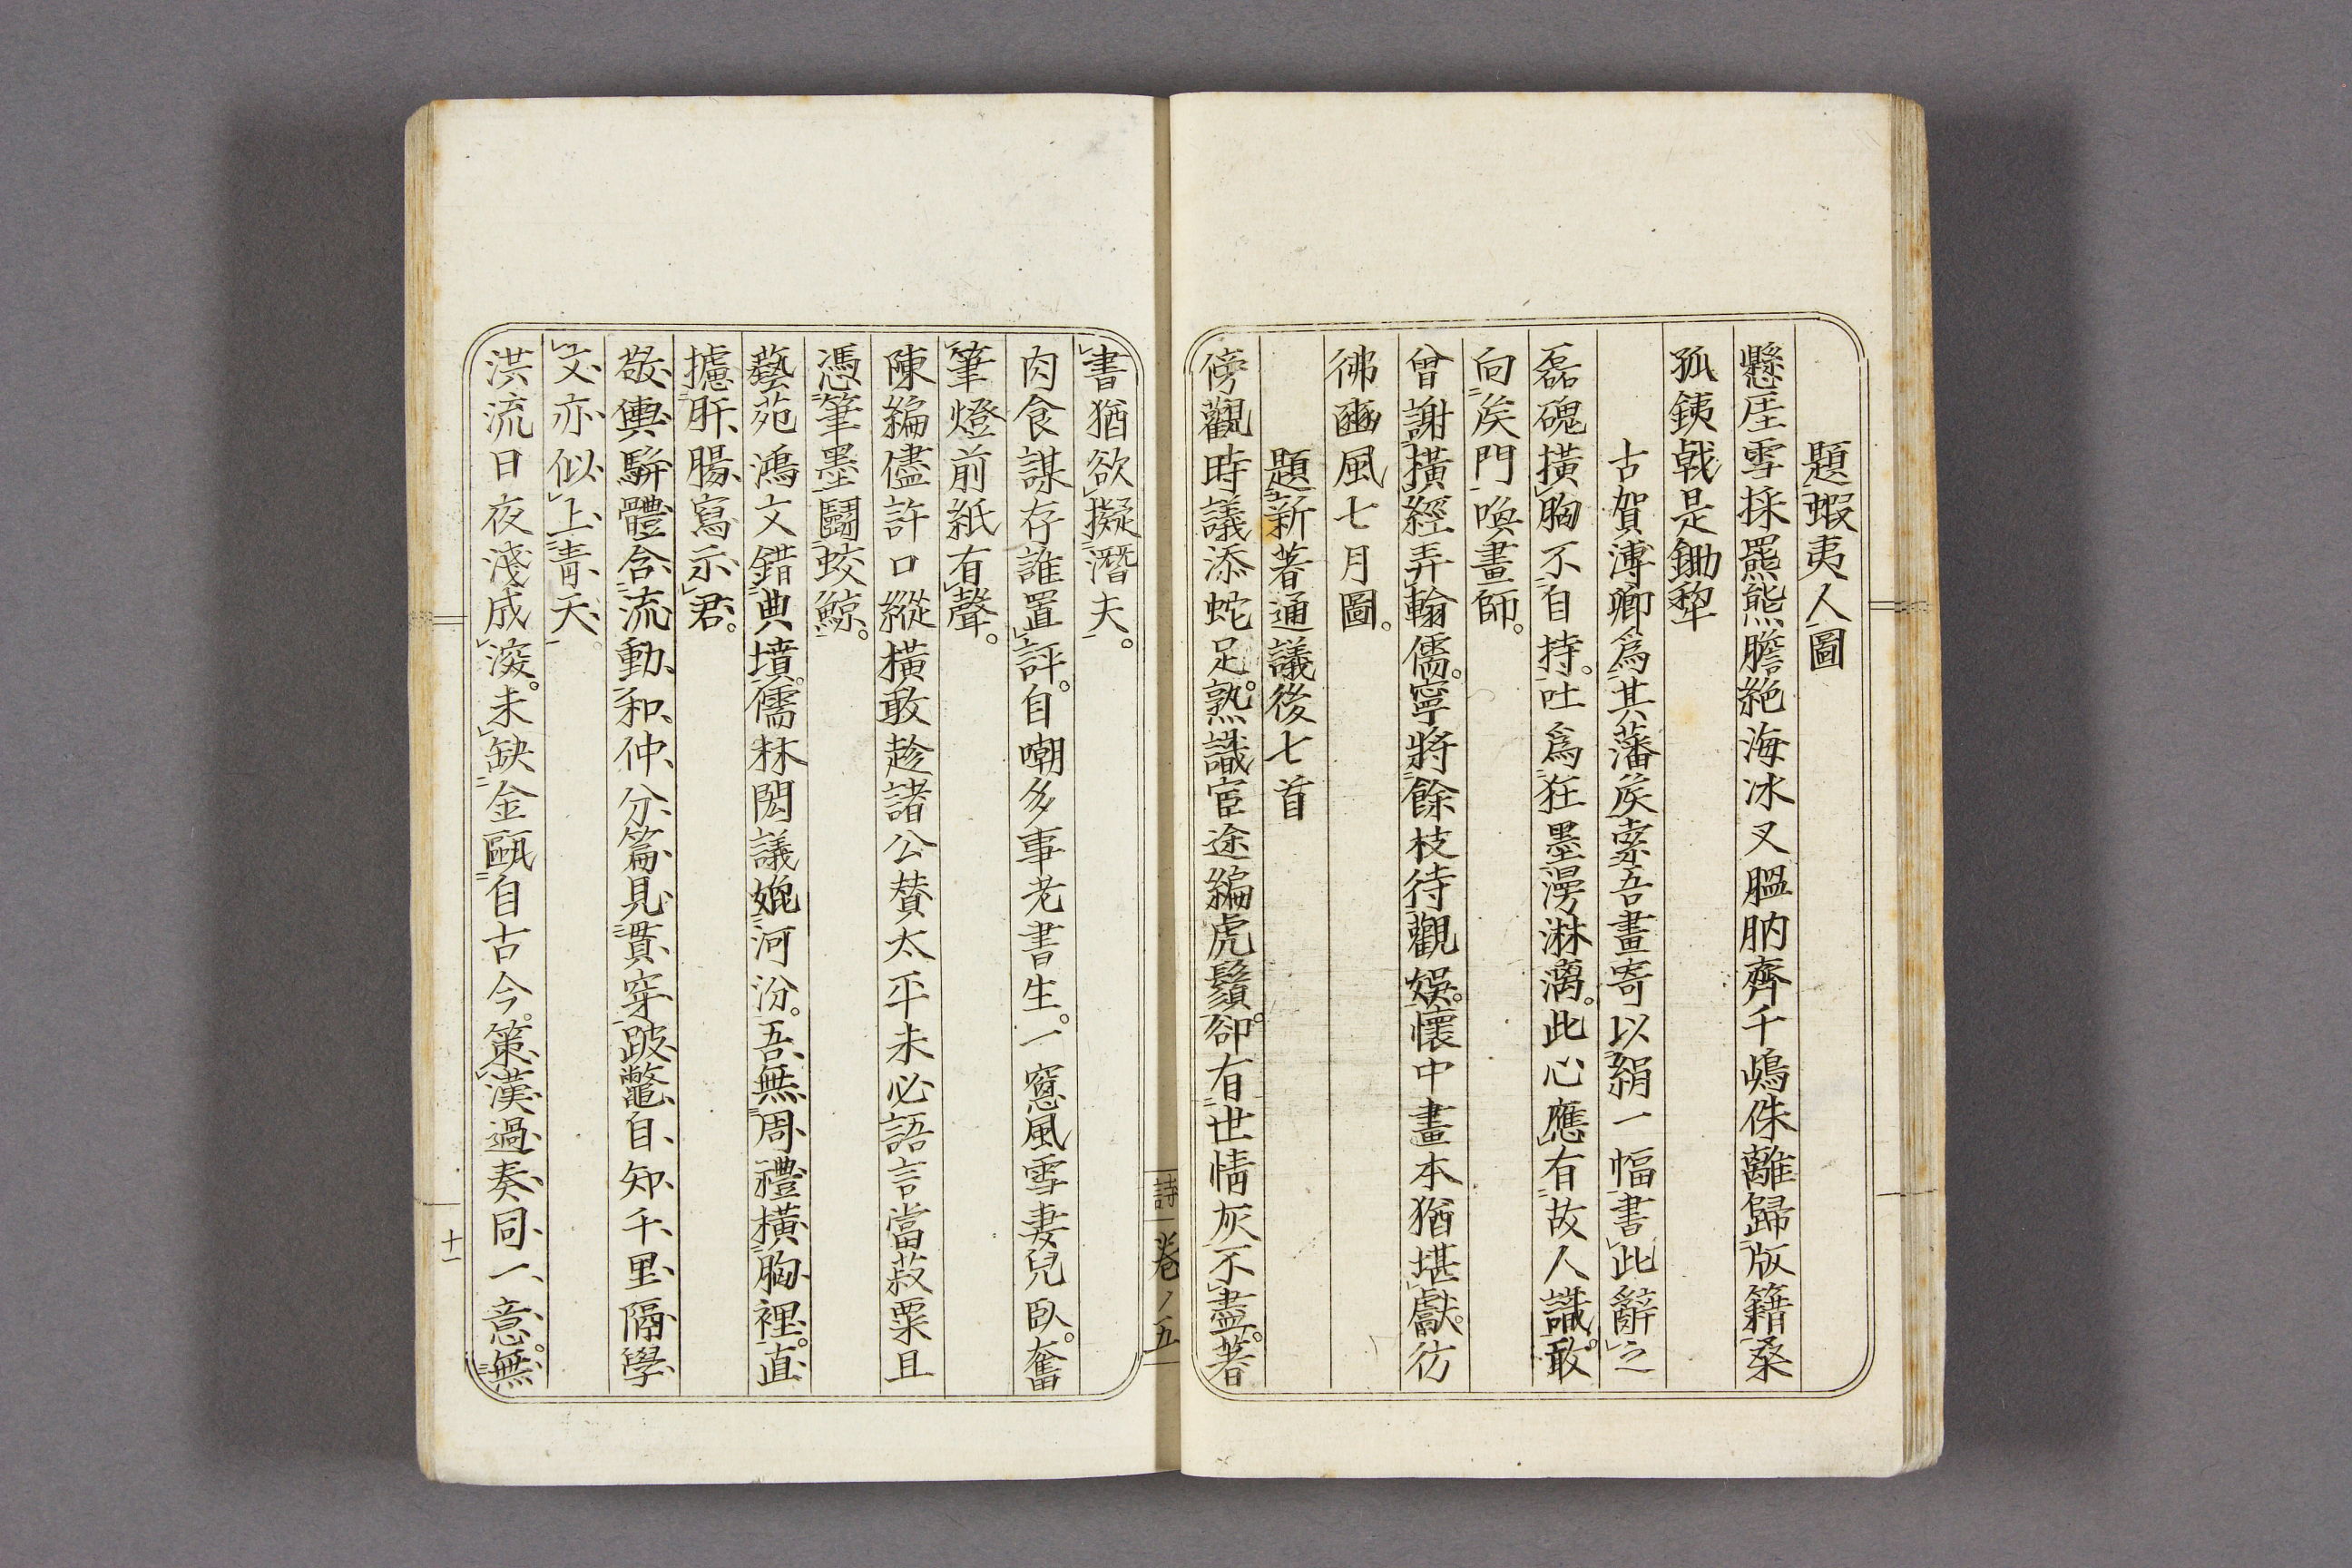 題蝦夷人圖
懸厓雪採羆熊膽絕海冰叉膃肭齊千嶋侏離歸版籍桑
孤銕戟是鋤犂
古賀溥卿爲其藩侯索吾畫寄以絹一幅書此辭之
磊磈横胸不自持。吐爲狂墨漫淋漓。此心應有故人識。敢
向侯門喚畫師。
曾謝横經弄翰儒。寧將餘枝待觀娛。懷中畫本猶堪獻。彷
彿豳風七月圖。
題新著通議後七首
傍觀時議添蛇足。熟識宦途編虎鬚。卻有世情灰不盡。著
書猶欲擬潛夫。
肉食謀存誰置評。自嘲多事老書生。一窻風雪妻兒臥。奮
筆燈前紙有聲。
陳編儘許口縱橫敢趁諸公賛太平未必語言當菽粟且
憑筆墨鬪蛟鯨。
藝苑鴻文錯典墳。儒林閎議媿河汾。吾無周禮橫胸裡。直
攄肝腸寫示君。
敬輿駢體含流動和仲分篇見貫穿跛鼈自知千里隔學
文亦似上青天。
洪流日夜淺成深。未缺金甌自古今。策漢過秦同一意。無
詩 卷ノ五
十一